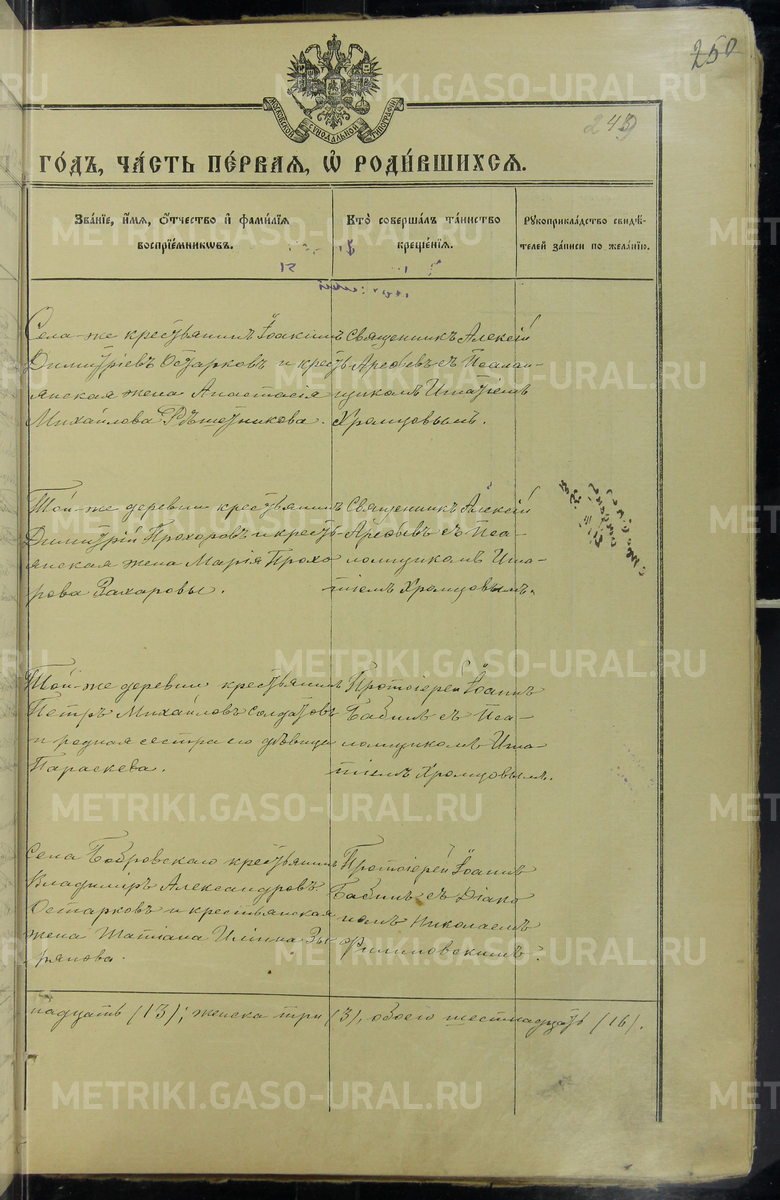 250
249
МОСКОВСКОЙ СѴНОДАЛЬНОЙ ТИПОГРАФІИ
ГО́ДЪ, ЧА́СТЬ ПЕ́РВАЯ, Ѽ РОДИ́ВШИХСЯ.
Зва́нїе, и҆́мѧ, ѻ҆́тчество и҆ фами́лїѧ
воспрїе́мникѡвъ.
Кто̀ соверша́лъ та́инство
креще́нїѧ.
Рꙋкоприкла́дство свидѣ́-
телей за́писи по жела́нїю.
Села-же крестьянинъ Іоакимъ
Димитріевъ Остарковъ и кресть
янская жена Анастасія
Михаилова Рѣшетникова.
Священникъ Алексій
Арефьевъ съ Псалом-
щикомъ Игнатіемъ
Хромцовымъ.
Той-же деревни крестьянинъ
Димитрій Прохоровъ и кресть
янская жена Марія Прохо
рова Захаровы.
Священникъ Алексій
Арефьевъ съ Пса-
ломщикомъ Игна-
тіемъ Хромцовымъ.
Той-же деревни крестьянинъ
Петръ Михаиловъ Солдатовъ
и родная сестра его дѣвица
Параскева.
Протоіерей Іоаннъ
Бабинъ съ Пса-
ломщикомъ Игна-
тіемъ Хромцовымъ.
Села Бобровскаго крестьянинъ
Владиміръ Александровъ
Остарковъ и крестьянская
жена Татіана Ильина Зы
рянова.
Протоіерей Іоаннъ
Бабинъ съ Діако
номъ Николаемъ
Филимовскимъ.
надцать (13); женска три (3), обоего шестнадцать (16).
METRIKI.GASO-URAL.RU